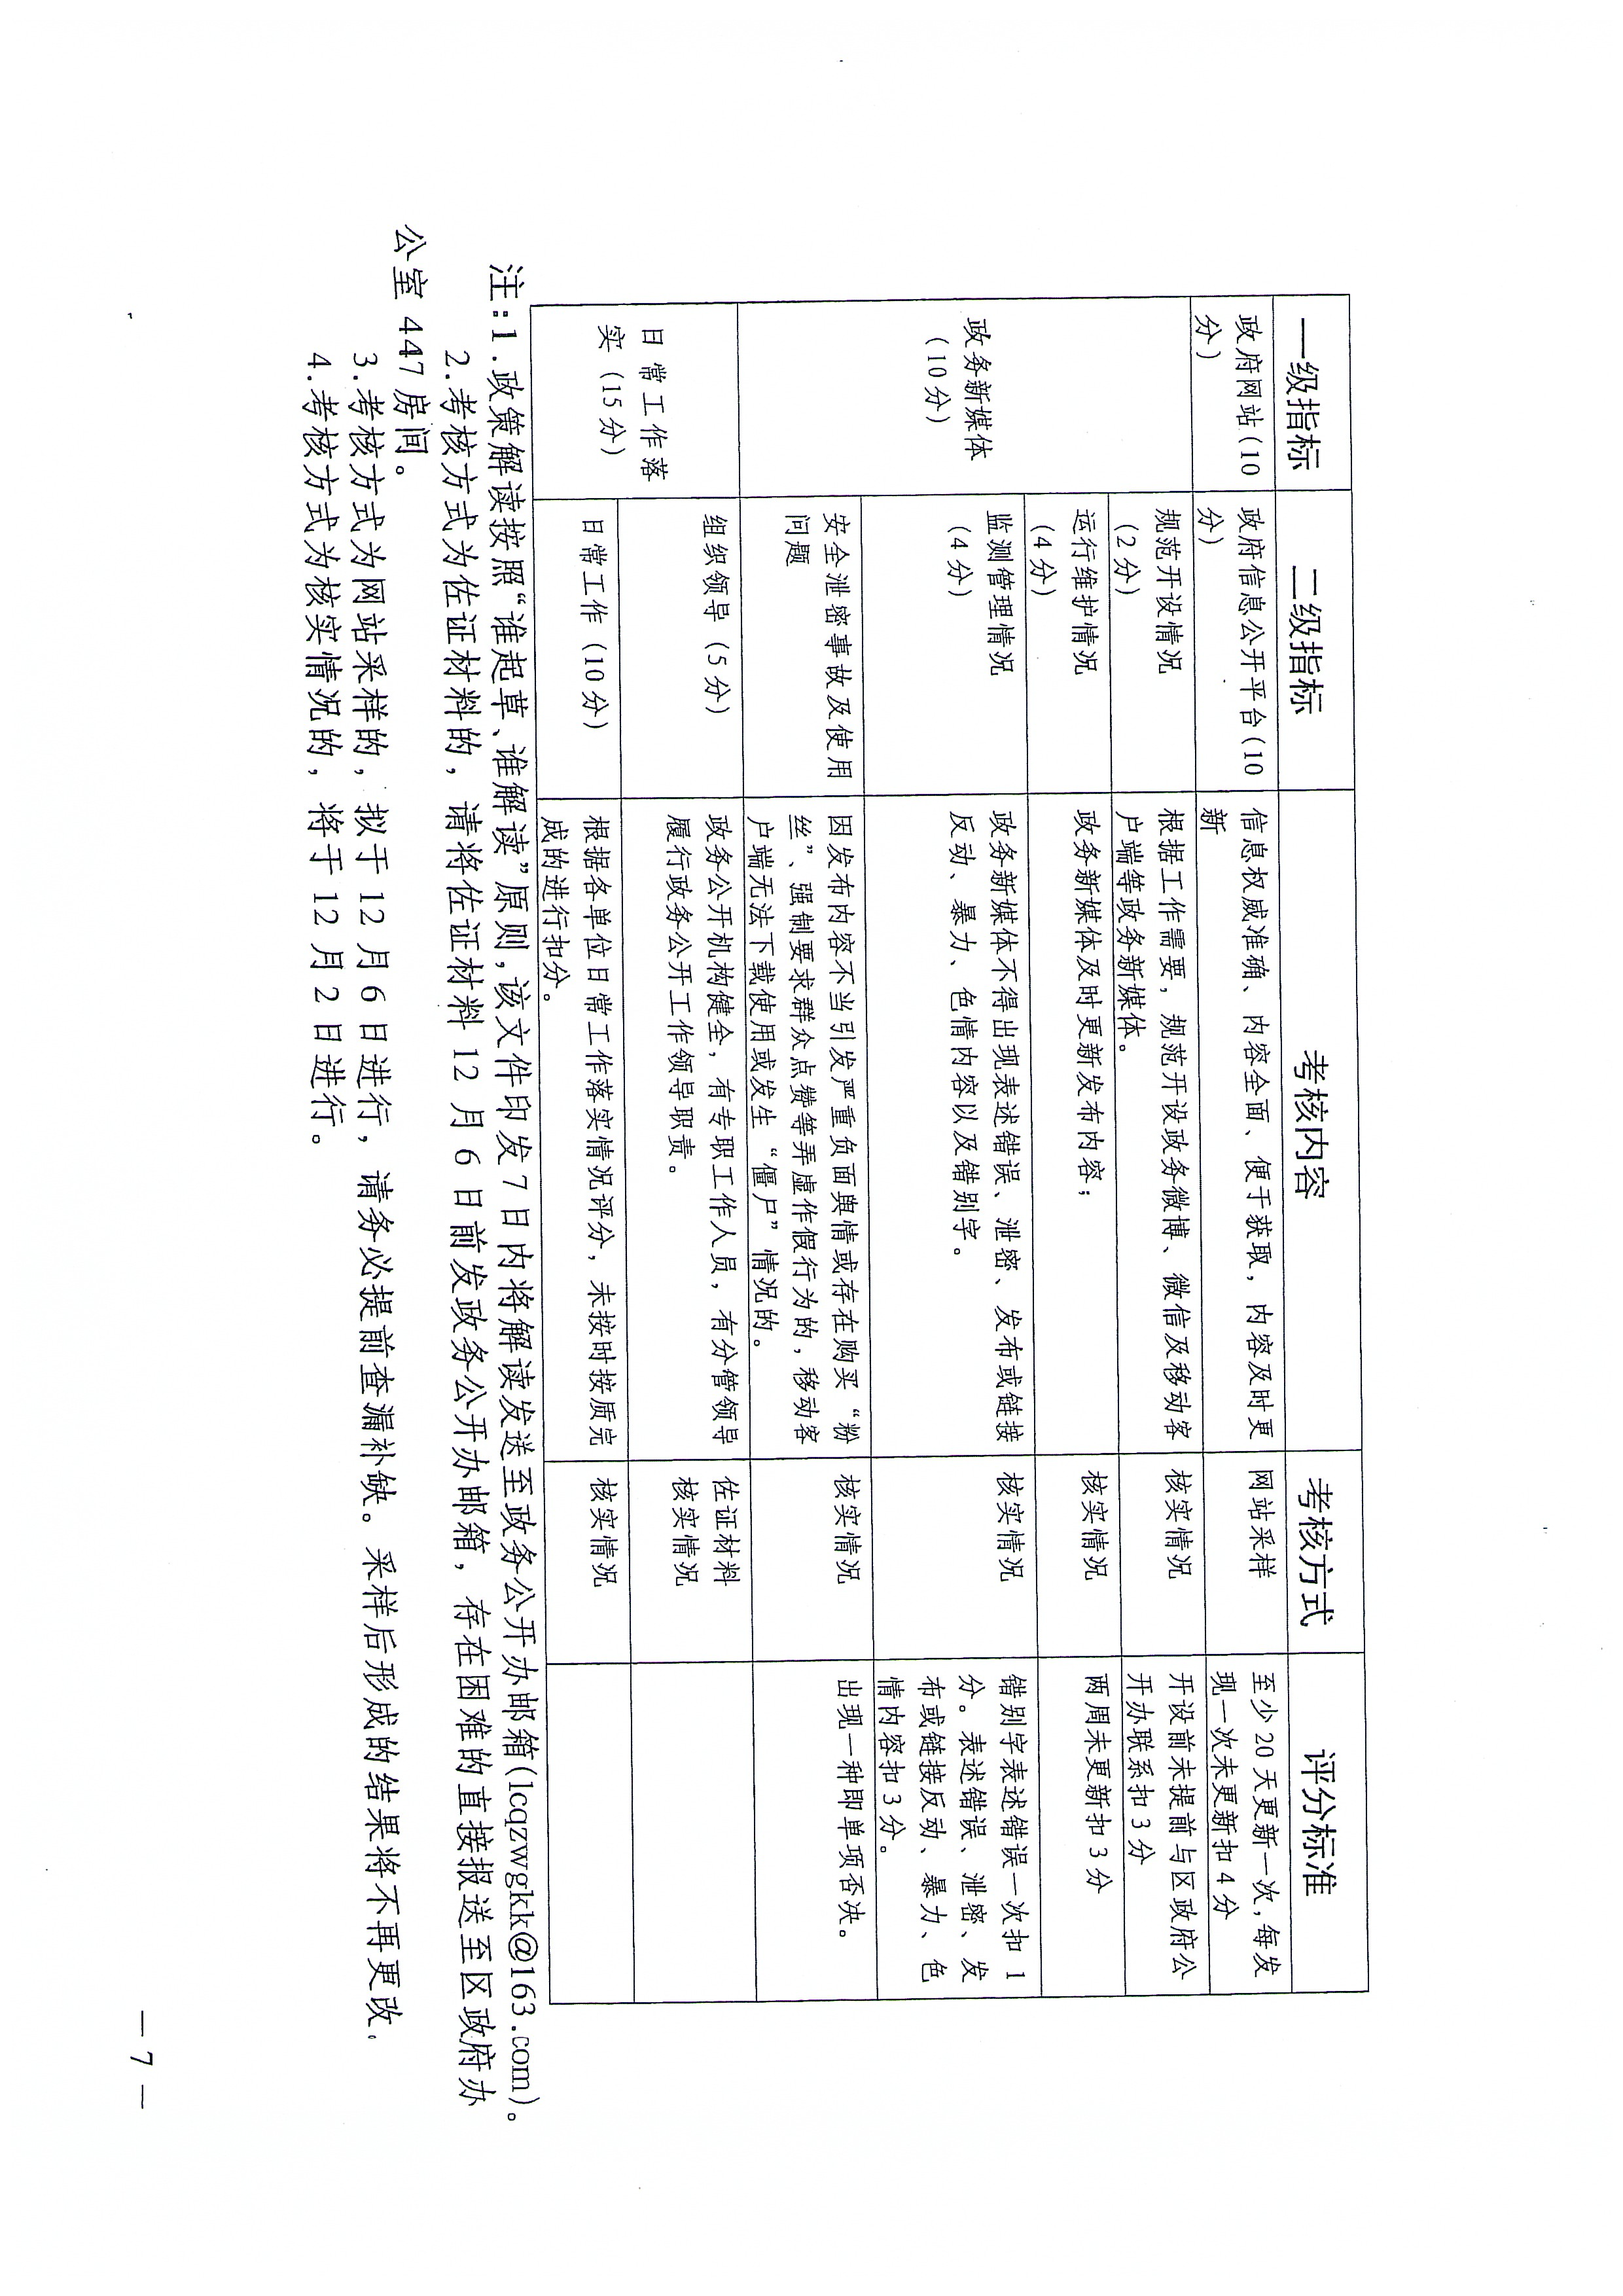 一级指标 二级指标 考核内容 考核方式 评分标准
政府网站(10
分)
政府信息公开平台(10
分)
信息权威准确、内容全面、便于获取，内容及时更
新
网站采样
至少20天更新一次,每发
现一次未更新扣4分
政务新媒体
(10分)
规范开设情况
(2分)
根据工作需要，规范开设政务微博、微信及移动客
户端等政务新媒体。
核实情况
开设前未提前与区政府公
开办联系扣3分
运行维护情况
(4分)
政务新媒体及时更新发布内容；
核实情况
两周未更新扣3分
监测管理情况
(4分)
政务新媒体不得出现表述错误、泄密、发布或链接
反动、暴力、色情内容以及错别字。
核实情况
错别字表述错误一次扣1
分。表述错误、泄密、发
布或链接反动、暴力、色
情内容扣3分。
安全泄密事故及使用
问题
因发布内容不当引发严重负面舆情或存在购买“粉
丝”、强制要求群众点赞等弄虚作假行为的，移动客
户端无法下载使用或发生“僵尸”情况的。
核实情况
出现一种即单项否决。
日常工作落
实（15分）
组织领导（5分）
政务公开机构健全，有专职工作人员，有分管领导
履行政务公开工作领导职责。
佐证材料
核实情况
日常工作（10分）
根据各单位日常工作落实情况评分，未按时按质完
成的进行扣分。
核实情况
注:1.政策解读按照“谁起草、谁解读”原则,该文件印发7日内将解读发送至政务公开办邮箱(lcqzwgkk@163.com)。
2.考核方式为佐证材料的，请将佐证材料12月6日前发政务公开办邮箱，存在困难的直接报送至区政府办
公室447房间。
3.考核方式为网站采样的，拟于12月6日进行，请务必提前查漏补缺。采样后形成的结果将不再更改。
4.考核方式为核实情况的，将于12月2日进行。
— 7 —